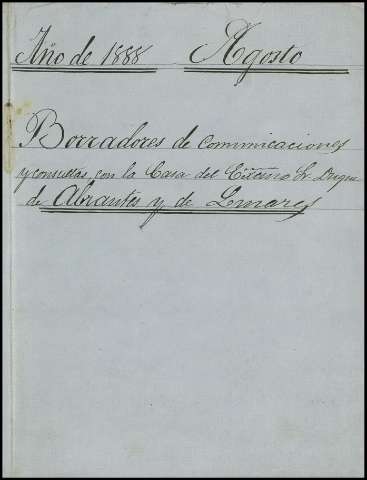 Año de 1888 Agosto
Borradores de Communicaciones
y consultas con la Casa del Excmo Sr Duque
de Abrantes y de Linares